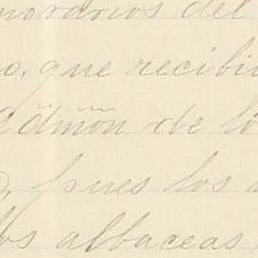 norarios del
o, que recibi
Admon de lo
, pues los
los albaceas